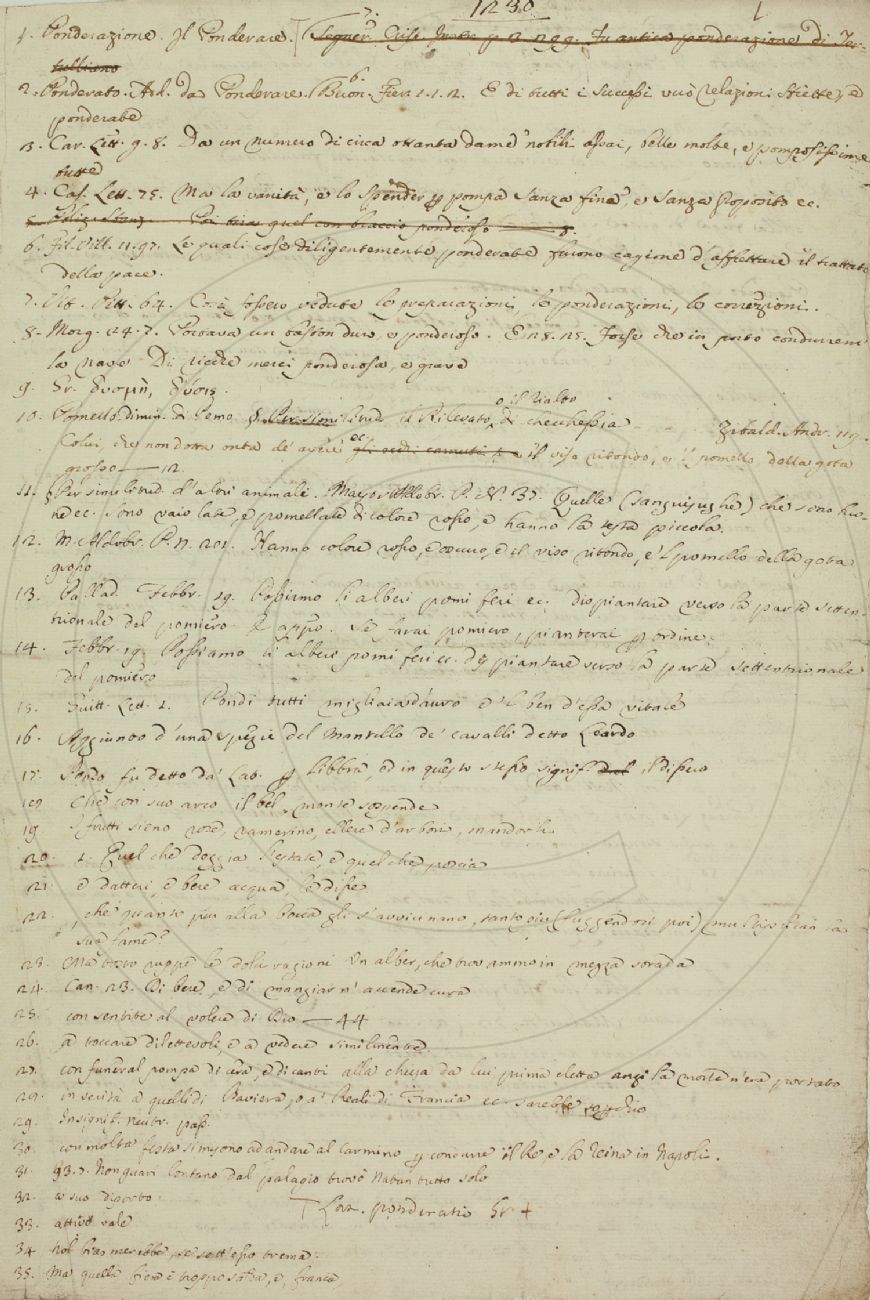 1230
1. Ponderazione. Il Ponderare. Segner. Crist. instr. p. 2. 299. Fu antica ponderazione di Ter-
tulliano
2. Ponderato. Add. da Ponderare. Buon. Fier. 1. 1. 2. E di tutti i successi vuò relazioni strette, e
ponderate
3. Car. Lett. 9. 8. Da un numero di circa ottanta dame nobili assai, belle molte, e pomposissime
tutte
4. Cas. Lett. 75. Ma la vanità, e lo spender p pompa sanza fine, e sanza proposito ec.
5. Poliz. Stanz. Poi tira quel con braccio ponderoso
6. Fil. Vill. 11. 97. Le quali cose diligentemente ponderate furono cagione d'affrettare il trattato
della pace.
7. Vit. Pitt. 64. Così fossero vedute le preparazioni, le ponderazioni, le correzioni.
8. Morg. 24. 7. Portava un baston duro, e ponderoso. E 28. 25. Forse che in porto condurremi
la nave Di ricche merci ponderosa, e grave
9. Gr.
o il rialto
10. Pomello. dimin. di Pomo p similitud. il Rilevato, di checchessia Zibald. Andr. 119.
Colui, che non dotta onta de' avere ec il viso ritondo, e 'l pomello della gota
grosso — 12.
11. Per similitud. d'altri animali. M. Aldobr. P. N. 37. Quelle (sanguisughe) che sono
ec. sono vaiolate, e pomellate di colore rosso, e hanno la testa piccola.
12. M. Aldobr. P. N. 201. Hanno colore rosso, e oscuro, e il viso ritondo, e 'l pomello della gota
grosso
13. Pallad. Febbr. 19. Possiamo li alberi pomi feri ec. dispiantare verso la parte setten-
trionale del pomiero. E appr. Se farai pomiero, pianterai p ordine.
14. Febbr. 19. Possiamo li alberi pomi feri ec. dispiantare verso la parte settentrionale
del pomiero
15. Guitt. Lett. 1. Pondi tutti migliaia d'auro e 'l ben d'essa vitale
16. Aggiunto d'una spezie del Mantello de' cavalli detto Leardo
17. Pondo fu detto da' Lat. p Libbra, ed in questo stesso signif. il dissero
18. Che con suo arco il bel monte sospende
19. I frutti sieno noce, ramerino, ellere d'arbori, mandorli
20. 1. Quel che deggia l'estate, e quel che poscia
21. e datteri, e bere acqua, le disse
22. che quanto piu alla bocca gli s'avvicinano, tanto piu (fuggendosi poi) multiplican la
sua fame?
23. Ma tosto ruppe le dolci ragioni Un alber, che trovammo in mezza strada
24. Can. 23. Di bere, e di mangiar n' accende cura
25. consentite al volere di Dio — 44
26. a toccare dilettevoli, e a vedere similmente
27. con funeral pompa di cera, e di canti alla chiesa da lui prima eletta anzi la morte n'era portato
28. in verità a quelli di Baviera, o a' Reali di Francia ec. sarebbe soperchio
29. In signif. neutr. pass.
30. con molta festa simisono ad andare al Carmino p condurre il Re, e la Reina in Napoli.
31. 93. 7. Non guari lontano dal palagio trovò Natan tutto solo
32. a suo diporto
Lat. ponderatio Gr. +
33. attivo vale
34.
35. Ma quella fiera è troppo salda, e franca